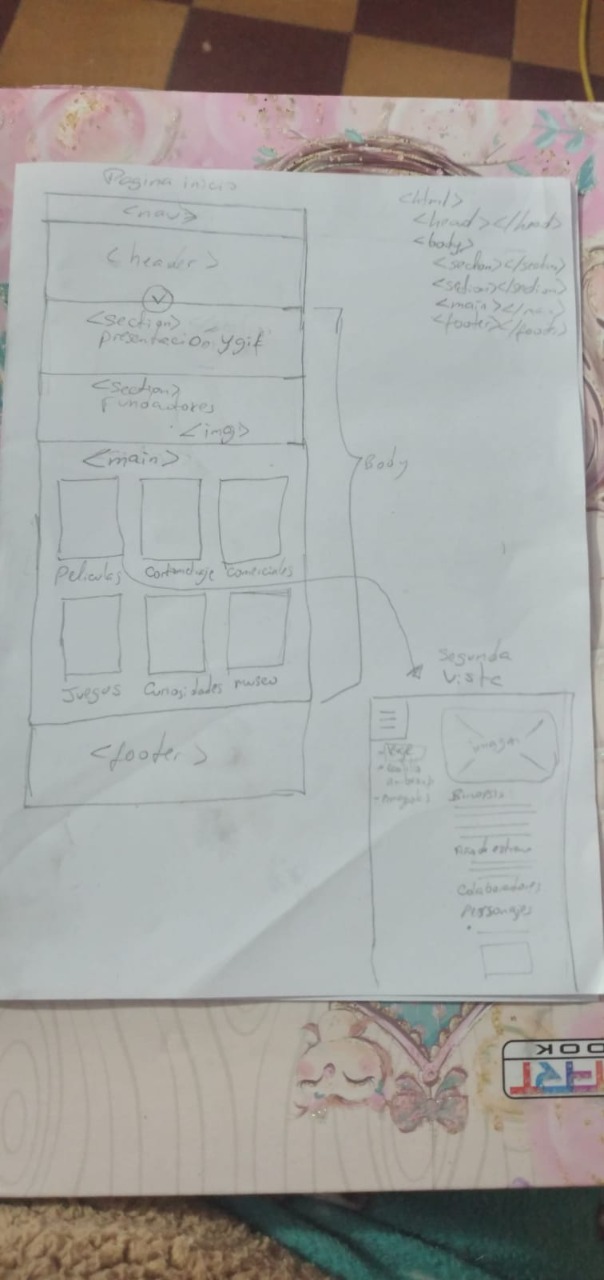 Pagina inicio
<nav>
<header>
<section>
presentación y gif
<section>
fundadores
<img>
<main>
Peliculas
Cortometraje
Comerciales
Juegos
Curiosidades
museo
<footer>
Body
<html>
<head></head>
<body>
<section></section>
<section></section>
<main></main>
<footer></footer>
Segunda
Vista
imagen
Sinopsis
Colaboradores
Personajes
ART
OOK